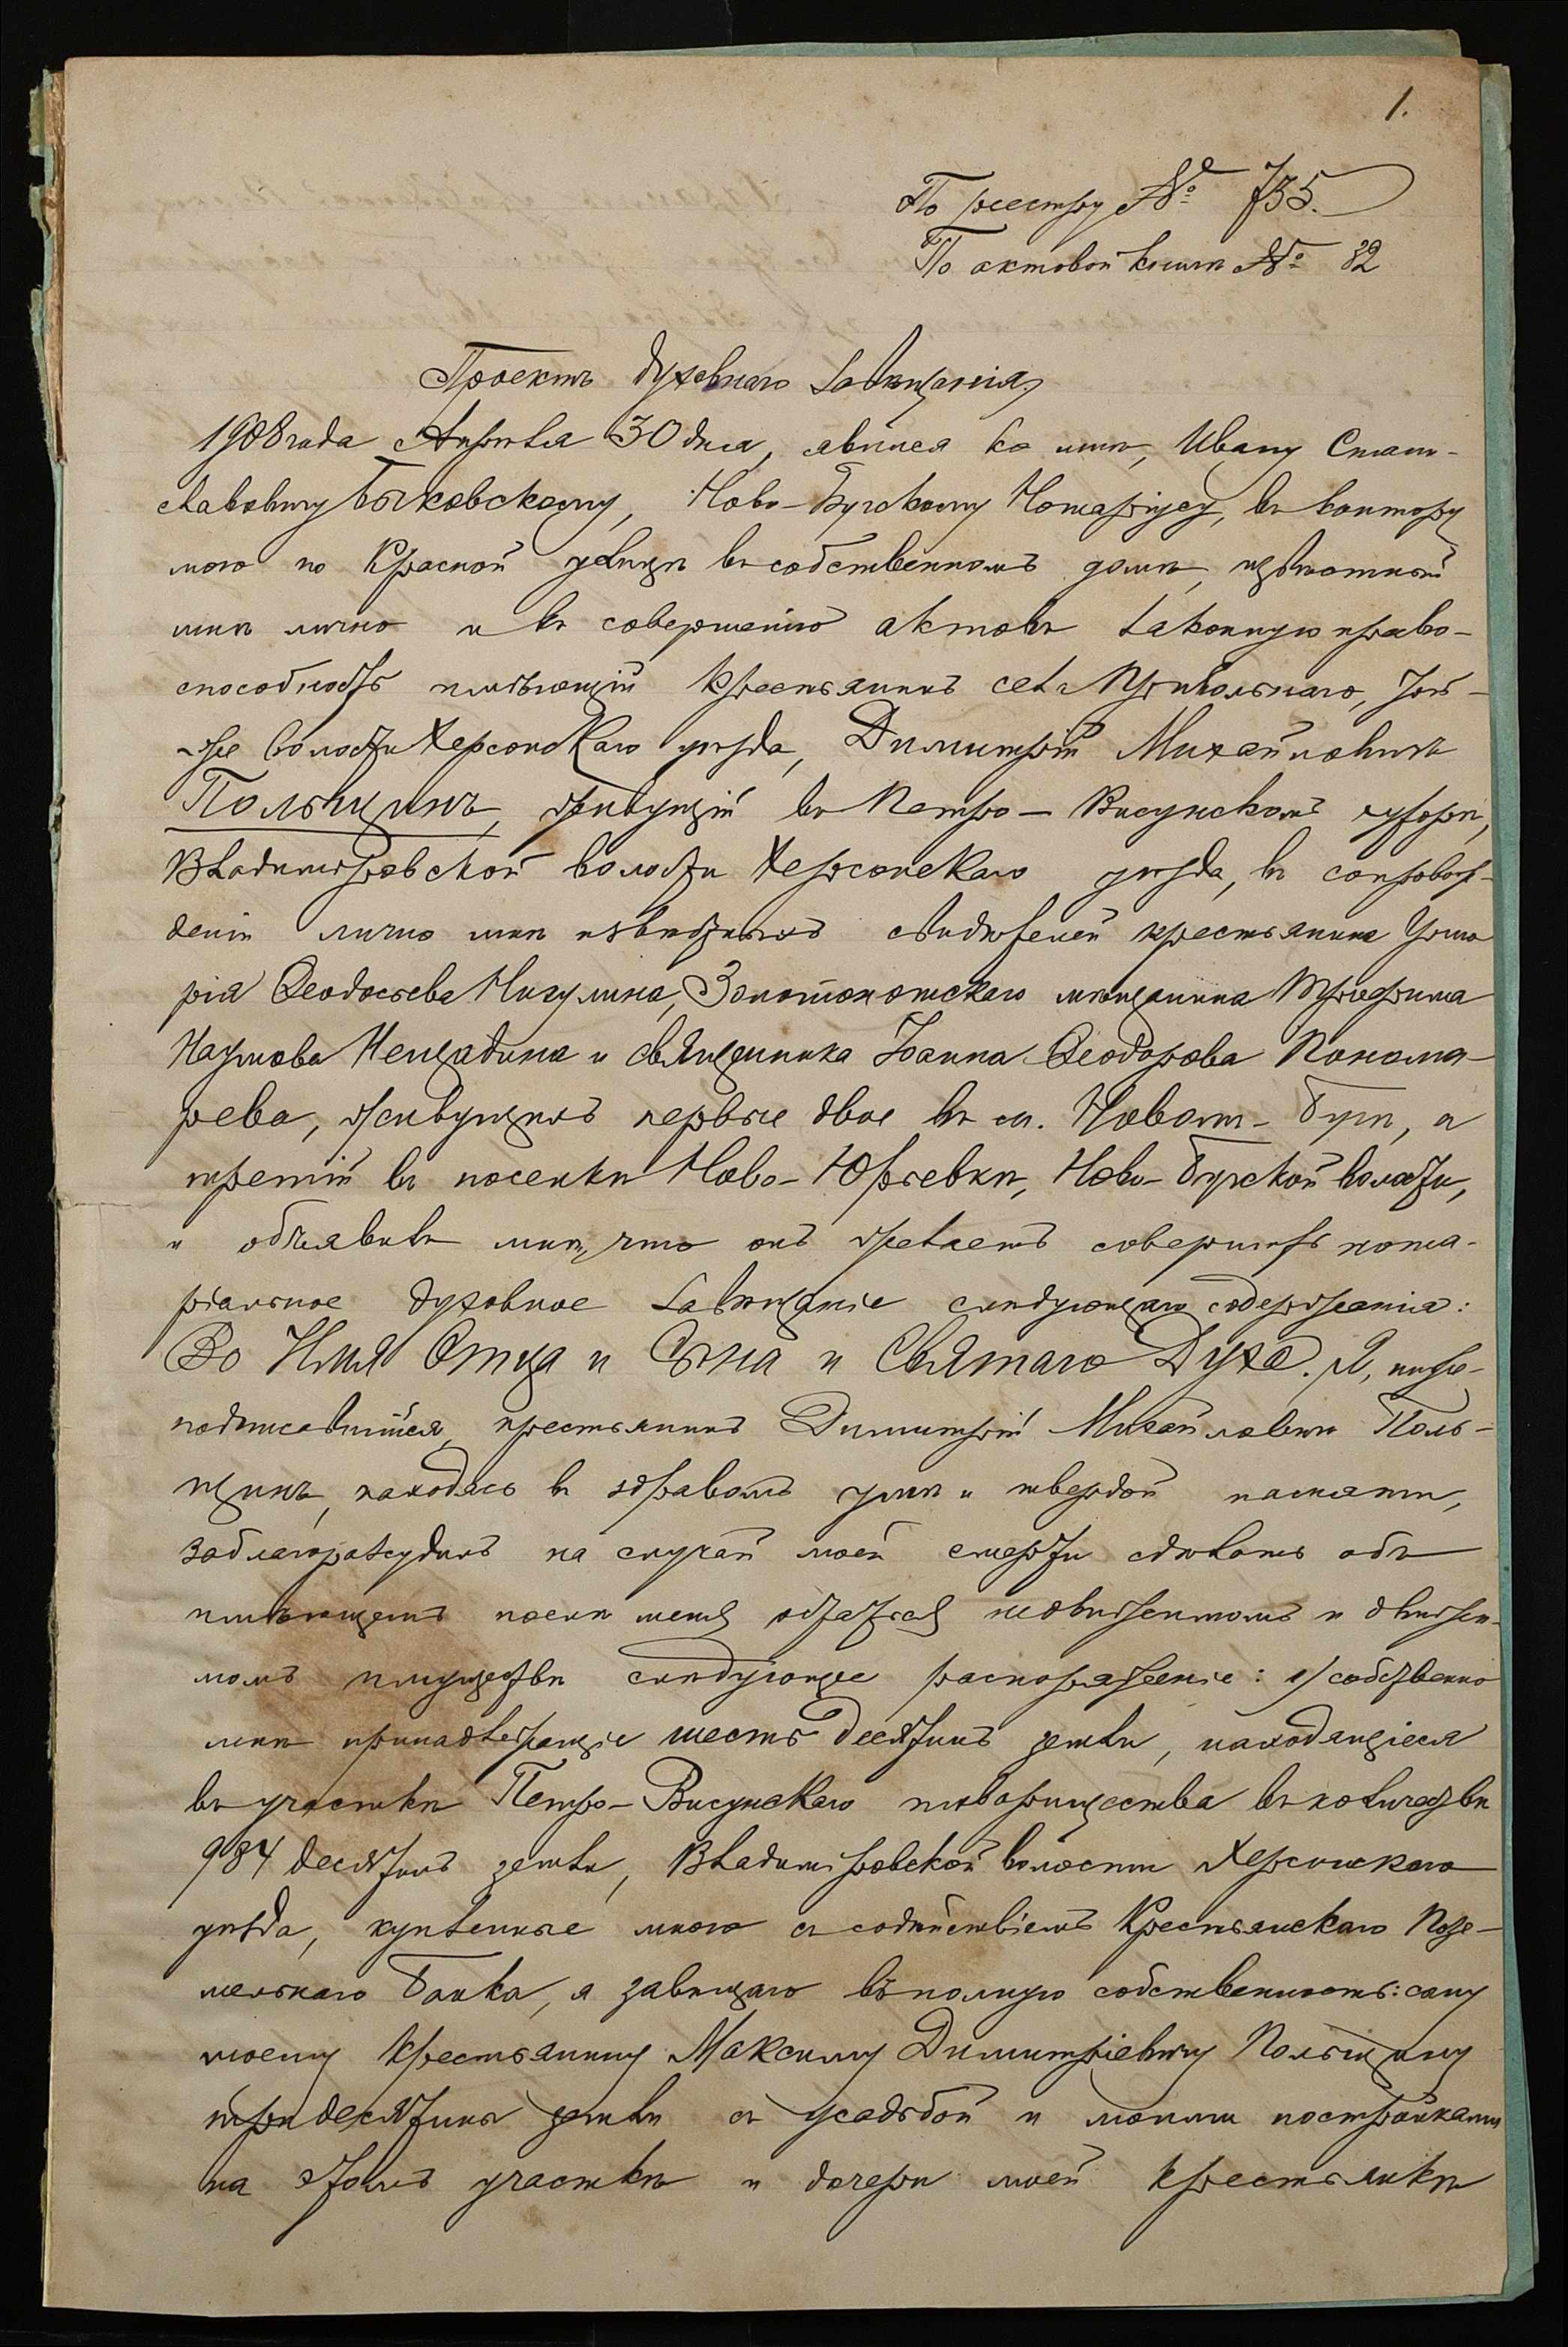 1.
По реестру № 735.
По актовой книгѣ № 32
Проектъ духовнаго завѣщанія.
1908 года Апрѣля 30 дня, явился ко мнѣ, Ивану Стани-
славовичу Быковскому, Ново-Бугскому Нотаріусу, въ контору
мою по Красной улицѣ въ собственномъ домѣ, извѣстный
мнѣ лично и къ совершенію актовъ законную право-
способность имѣющій крестьянинъ села Привольнаго, той-
же волости Херсонскаго уѣзда, Димитрій Михайловичъ
Польщинъ, живущій въ Петро-Висунскомъ хуторѣ,
Владиміровской волости Херсонскаго уѣзда, въ сопровож-
деніи лично мнѣ извѣстныхъ свидѣтелей крестьянина
рія Ѳеодосьева Нигулина, Золотоношскаго мѣщанина Трифима
Наумова Нещадима и священника Іоанна Ѳеодорова Понома-
рева, живущихъ первые двое въ м. Новомъ-Бугѣ, а
третій въ поселкѣ Ново-Юрьевкѣ, Ново-Бугской волости,
и объявилъ мнѣ, что онъ желаетъ совершить нота-
ріальное духовное завѣщаніе слѣдующаго содержанія:
Во Имя Отца и Сына и Святаго Духа. Я, ниже-
подписавшійся, крестьянинъ Димитрій Михайловичъ Поль-
щинъ, находясь въ здравомъ умѣ и твердой памяти,
заблагоразсудилъ на случай моей смерти сдѣлать объ
имѣющемъ послѣ меня остаться недвижимомъ и движи-
момъ имуществѣ слѣдующее распоряженіе: 1) собственно
мнѣ принадлежащіе шесть десятинъ земли, находящіеся
въ участкѣ Петро-Висунскаго товарищества въ количествѣ
984 десятинъ земли, Владиміровской волости Херсонскаго
уѣзда, купленные мною съ содѣйствіемъ Крестьянскаго Позе-
мельнаго Банка, я завѣщаю въ полную собственность: сыну
моему крестьянину Максиму Димитріевичу Польщину
три десятины земли съ усадьбой и моими постройками
на этомъ участкѣ и дочери моей крестьянкѣ